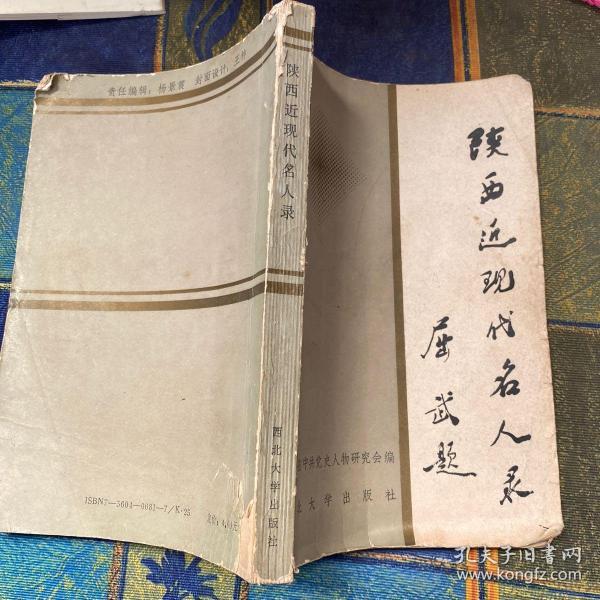 责任编辑：杨景震 封面设计：王朴
陕西近现代名人录
西北大学出版社
ISBN7—5604—0081—7/K·25
定价：4.
陕西近现代名人录
屈武题
中共党史人物研究会编
大学出版社
孔夫子旧书网
www.kongfz.com